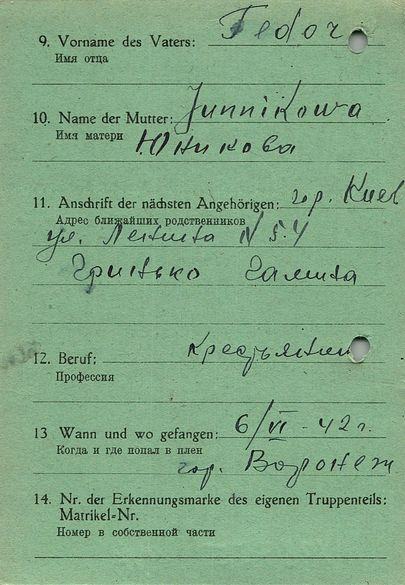 9. Vorname des Vaters: Fedor
Имя отца
10. Name der Mutter: Junnikowa
Имя матери
Юникова
11. Anschrift der nächsten Angehörigen: гор. Киев
Адрес ближайших родственников
ул. Ленина N 54
Гритько Галина
12. Beruf: крестьянин
Профессия
13 Wann und wo gefangen: 6/VI - 42 г.
Когда и где попал в плен
гор. Воронеж
14. Nr. der Erkennungsmarke des eigenen Truppenteils:
Matrikel-Nr.
Номер в собственной части